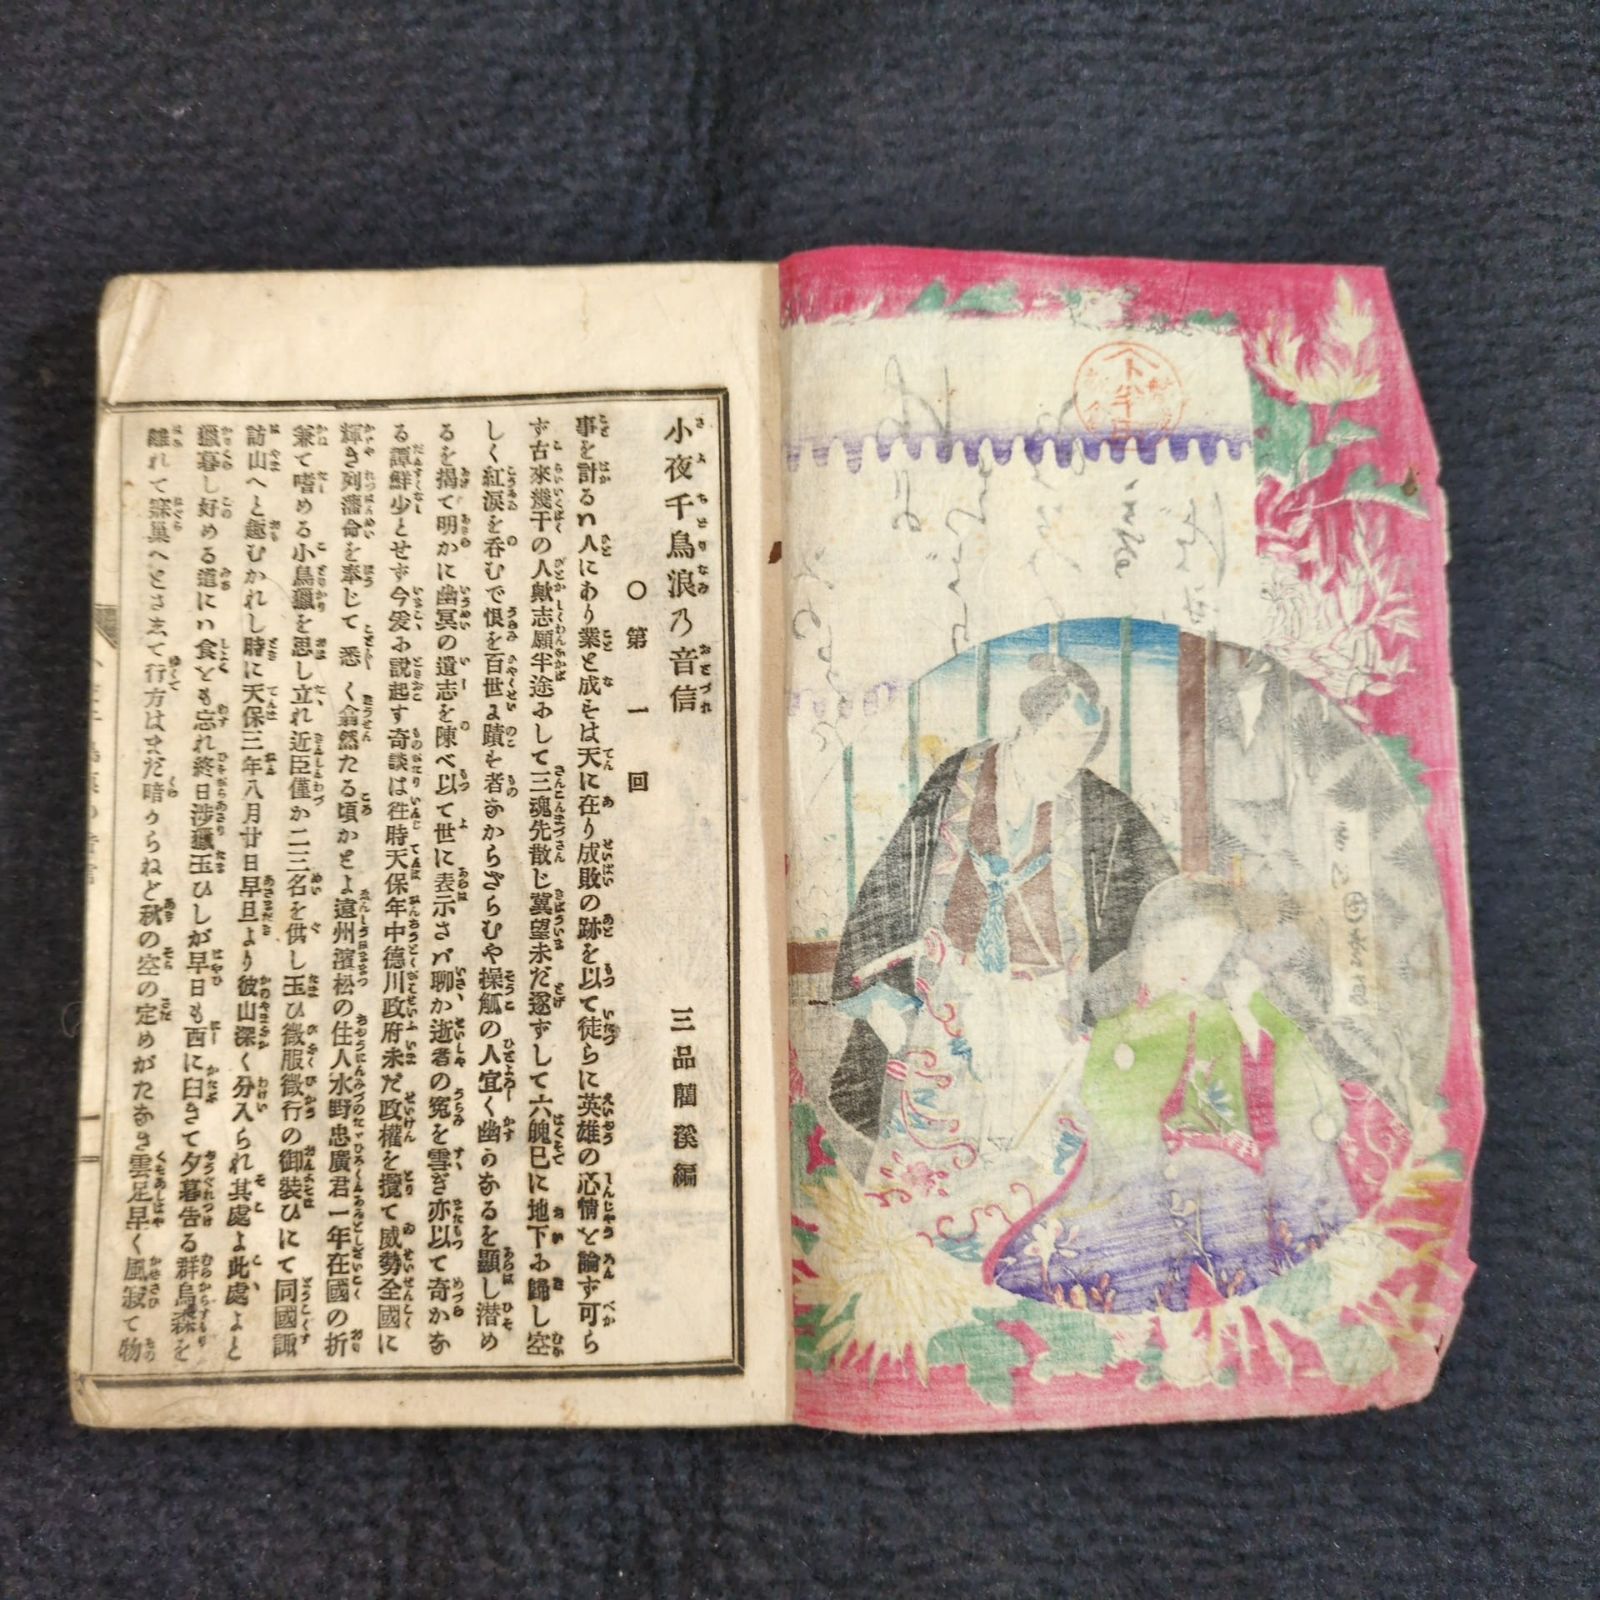 小夜千鳥浪乃音信
三品藺溪編
○第一回
事を計るハ人にあり業を成そは天に在り成敗の跡を以て徒らに英雄の心情を論ず可ら
ず古來幾干の人歟志願半途ふして三魂先散じ冀望未だ遂ずして六魄已に地下ふ歸し空
しく紅涙を呑むで恨を百世よ蹟を者なからざらむや操觚の人宜く幽らなるを顯し潜め
るを揭て明かに幽冥の遺志を陳べ以て世に表示さバ聊か逝者の冤を雪ぎ亦以て奇かな
る譚鮮少とせず今爰ふ說起す奇談は徃時天保年中德川政府未だ政權を攬て威勢全國に
輝き列藩命を奉じて悉く翕然たる頃かとよ遠州濱松の住人水野忠廣君一年在國の折
兼て嗜める小鳥獵を思し立れ近臣僅か二三名を供し玉ひ微服微行の御裝ひにて同國諏
訪山へと趣むかれし時に天保三年八月廿日早旦より彼山深く分入られ其處よ此處よと
獵暮し好める道にハ食とも忘れ終日涉獵玉ひしが早日も西に臼きて夕暮告る群烏森を
離れて寐巢へとさして行方はまだ暗からねど秋の空の定めがたなき雲足早く風寂て物